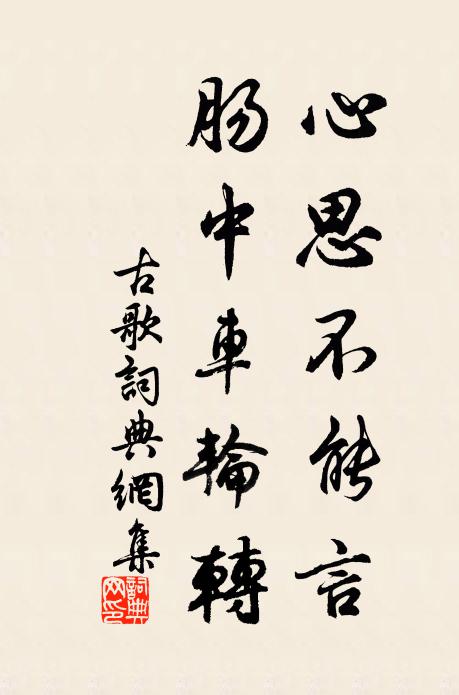 心思不能言
腸中車輪轉
古歌詞典網集
詞典网印